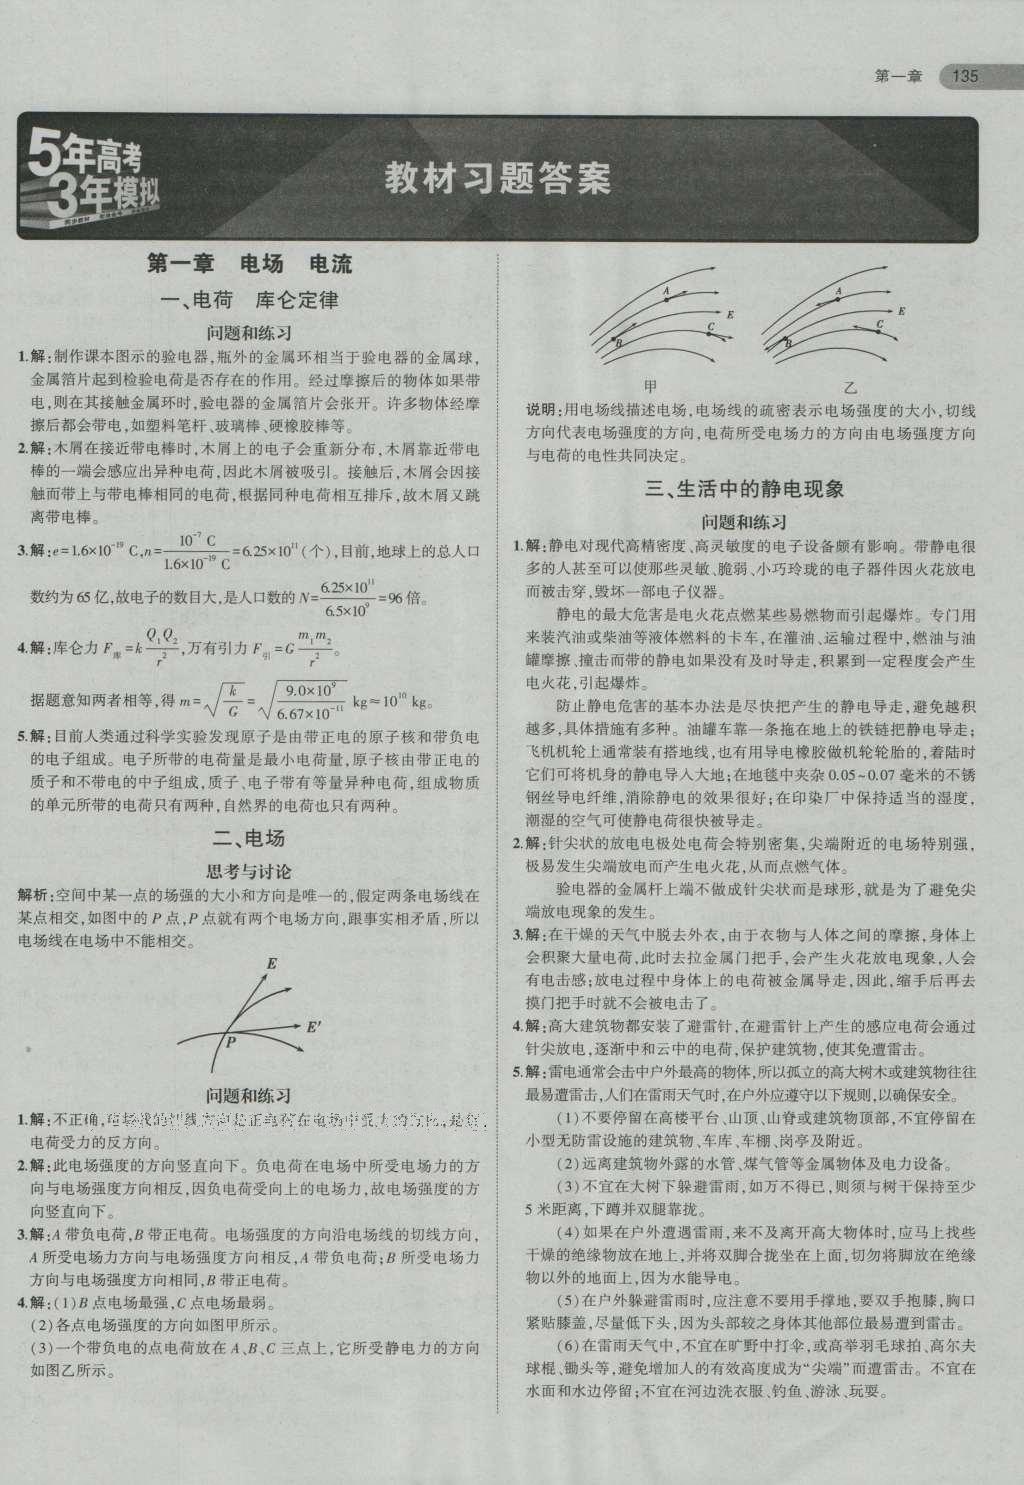 第一章 135
5年高考
3年模拟
教材习题答案
第一章 电场 电流
一、电荷 库仑定律
问题和练习
1.解:制作课本图示的验电器,瓶外的金属环相当于验电器的金属球,
金属箔片起到检验电荷是否存在的作用。经过摩擦后的物体如果带
电,则在其接触金属环时,验电器的金属箔片会张开。许多物体经摩
擦后都会带电,如塑料笔杆、玻璃棒、硬橡胶棒等。
2.解:木屑在接近带电棒时,木屑上的电子会重新分布,木屑靠近带电
棒的一端会感应出异种电荷,因此木屑被吸引。接触后,木屑会因接
触而带上与带电棒相同的电荷,根据同种电荷相互排斥,故木屑又跳
离带电棒。
3.解:e=1.6×10⁻¹⁹ C,n=10⁻⁷ C/1.6×10⁻¹⁹ C=6.25×10¹¹(个),目前,地球上的总人口
数约为65亿,故电子的数目大,是人口数的N=6.25×10¹¹/6.5×10⁹=96倍。
4.解:库仑力F库=kQ₁Q₂/r²,万有引力F引=Gm₁m₂/r²。
据题意知两者相等,得m=√(k/G)=√(9.0×10⁹/6.67×10⁻¹¹) kg≈10¹⁰ kg。
5.解:目前人类通过科学实验发现原子是由带正电的原子核和带负电
的电子组成。电子所带的电荷量是最小电荷量,原子核由带正电的
质子和不带电的中子组成,质子、电子带有等量异种电荷,组成物质
的单元所带的电荷只有两种,自然界的电荷也只有两种。
二、电场
思考与讨论
解析:空间中某一点的场强的大小和方向是唯一的,假定两条电场线在
某点相交,如图中的P点,P点就有两个电场方向,跟事实相矛盾,所以
电场线在电场中不能相交。
E
E′
P
问题和练习
1.解:不正确,电场线的切线方向是正电荷在电场中受力的方向,是负
电荷受力的反方向。
2.解:此电场强度的方向竖直向下。负电荷在电场中所受电场力的方
向与电场强度方向相反,因负电荷受向上的电场力,故电场强度的方
向竖直向下。
3.解:A带负电荷,B带正电荷。电场强度的方向沿电场线的切线方向,
A所受电场力方向与电场强度方向相反,A带负电荷;B所受电场力
方向与电场强度方向相同,B带正电荷。
4.解:(1)B点电场最强,C点电场最弱。
(2)各点电场强度的方向如图甲所示。
(3)一个带负电的点电荷放在A、B、C三点上,它所受静电力的方向
如图乙所示。
A
B
C
E
A
B
C
E
甲 乙
说明:用电场线描述电场,电场线的疏密表示电场强度的大小,切线
方向代表电场强度的方向,电荷所受电场力的方向由电场强度方向
与电荷的电性共同决定。
三、生活中的静电现象
问题和练习
1.解:静电对现代高精密度、高灵敏度的电子设备颇有影响。带静电很
多的人甚至可以使那些灵敏、脆弱、小巧玲珑的电子器件因火花放电
而被击穿,毁坏一部电子仪器。
静电的最大危害是电火花点燃某些易燃物而引起爆炸。专门用
来装汽油或柴油等液体燃料的卡车,在灌油、运输过程中,燃油与油
罐摩擦、撞击而带的静电如果没有及时导走,积累到一定程度会产生
电火花,引起爆炸。
防止静电危害的基本办法是尽快把产生的静电导走,避免越积
越多,具体措施有多种。油罐车靠一条拖在地上的铁链把静电导走;
飞机机轮上通常装有搭地线,也有用导电橡胶做机轮轮胎的,着陆时
它们可将机身的静电导入大地;在地毯中夹杂0.05~0.07毫米的不锈
钢丝导电纤维,消除静电的效果很好;在印染厂中保持适当的湿度,
潮湿的空气可使静电荷很快被导走。
2.解:针尖状的放电电极处电荷会特别密集,尖端附近的电场特别强,
极易发生尖端放电而产生电火花,从而点燃气体。
验电器的金属杆上端不做成针尖状而是球形,就是为了避免尖
端放电现象的发生。
3.解:在干燥的天气中脱去外衣,由于衣物与人体之间的摩擦,身体上
会积聚大量电荷,此时去拉金属门把手,会产生火花放电现象,人会
有电击感;放电过程中身体上的电荷被金属导走,因此,缩手后再去
摸门把手时就不会被电击了。
4.解:高大建筑物都安装了避雷针,在避雷针上产生的感应电荷会通过
针尖放电,逐渐中和云中的电荷,保护建筑物,使其免遭雷击。
5.解:雷电通常会击中户外最高的物体,所以孤立的高大树木或建筑物往往
最易遭雷击,人们在雷雨天气时,在户外应遵守以下规则,以确保安全。
(1)不要停留在高楼平台、山顶、山脊或建筑物顶部,不宜停留在
小型无防雷设施的建筑物、车库、车棚、岗亭及附近。
(2)远离建筑物外露的水管、煤气管等金属物体及电力设备。
(3)不宜在大树下躲避雷雨,如万不得已,则须与树干保持至少
5米距离,下蹲并双腿靠拢。
(4)如果在户外遭遇雷雨,来不及离开高大物体时,应马上找些
干燥的绝缘物放在地上,并将双脚合拢坐在上面,切勿将脚放在绝缘
物以外的地面上,因为水能导电。
(5)在户外躲避雷雨时,应注意不要用手撑地,要双手抱膝,胸口
紧贴膝盖,尽量低下头,因为头部较之身体其他部位最易遭到雷击。
(6)在雷雨天气中,不宜在旷野中打伞,或高举羽毛球拍、高尔夫
球棍、锄头等,避免增加人的有效高度成为“尖端”而遭雷击。不宜在
水面和水边停留;不宜在河边洗衣服、钓鱼、游泳、玩耍。